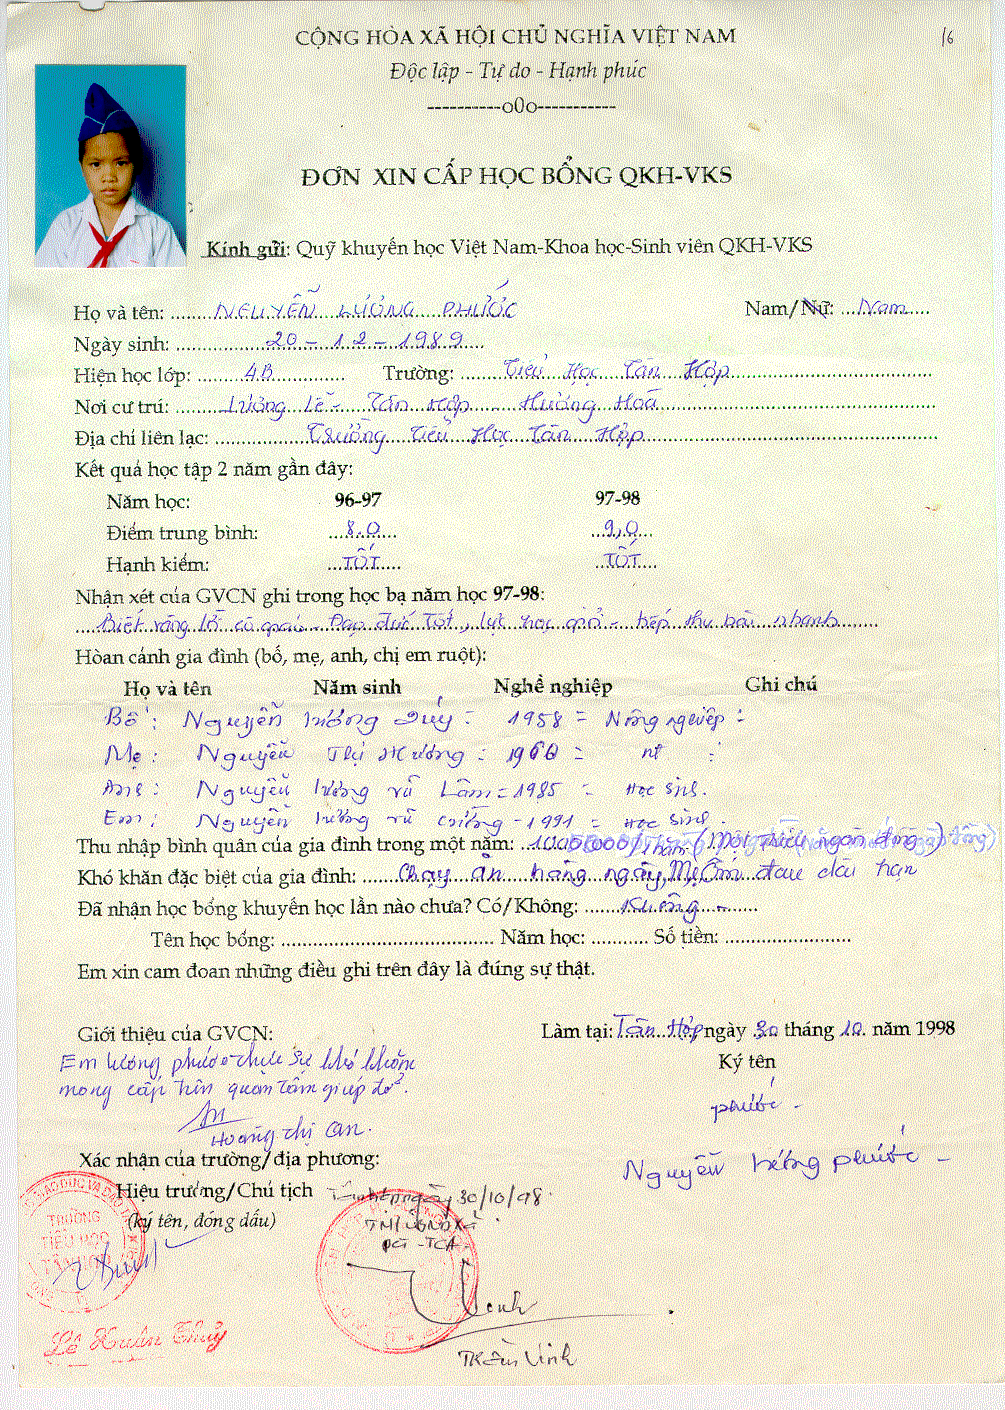 CỘNG HÒA XÃ HỘI CHỦ NGHĨA VIỆT NAM
16
Độc lập - Tự do - Hạnh phúc
----------o0o-----------
ĐƠN XIN CẤP HỌC BỔNG QKH-VKS
Kính gửi: Quỹ khuyến học Việt Nam-Khoa học-Sinh viên QKH-VKS
Họ và tên: NGUYỄN LƯƠNG PHƯỚC Nam/Nữ: Nam
Ngày sinh: 20 - 12 - 1989
Hiện học lớp: 4B Trường: Tiểu Học Tân Hợp
Nơi cư trú: Lương Lễ - Tân Hợp - Hướng Hoá
Địa chỉ liên lạc: Trường Tiểu Học Tân Hợp
Kết quả học tập 2 năm gần đây:
Năm học: 96-97 97-98
Điểm trung bình: 8,0 9,0
Hạnh kiểm: TỐT TỐT
Nhận xét của GVCN ghi trong học bạ năm học 97-98:
Biết vâng lời cô giáo - Đạo đức Tốt, lực học giỏi - tiếp thu bài nhanh
Hòan cảnh gia đình (bố, mẹ, anh, chị em ruột):
Họ và tên Năm sinh Nghề nghiệp Ghi chú
Bố : Nguyễn Lương Quý : 1958 = Nông nghiệp :
Mẹ : Nguyễn Thị Hương = 1960 = nt :
Anh : Nguyễn Lương Vũ Lâm = 1985 = Học sinh.
Em : Nguyễn Lương Vũ Cường - 1991 = Học sinh.
Thu nhập bình quân của gia đình trong một năm:
Khó khăn đặc biệt của gia đình: Chạy ăn hàng ngày, Mẹ Ốm đau dài hạn
Đã nhận học bổng khuyến học lần nào chưa? Có/Không: Không -
Tên học bổng: Năm học: Số tiền:
Em xin cam đoan những điều ghi trên đây là đúng sự thật.
Giới thiệu của GVCN: Làm tại: Tân Hợp ngày 30 tháng 10 năm 1998
Em Lương phước thực sự khó khăn Ký tên
mong cấp trên quan tâm giúp đỡ. phước -
Hoàng Thị An.
Xác nhận của trường/địa phương: Nguyễn Lương phước -
Hiệu trưởng/Chủ tịch Tân Hợp ngày 30/10/98.
(ký tên, đóng dấu) TM/UBND XÃ
TRƯỜNG
TIỂU HỌC
TÂN HỢP
Lê Xuân Thủy
Trần Vinh